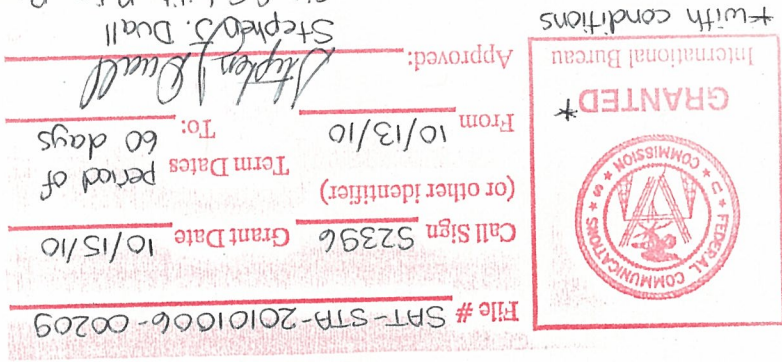 File # SAT-STA-20101006-00209
Call Sign S2396 Grant Date 10/15/10
(or other identifier)
Term Dates period of
From 10/13/10 To: 60 days
Approved: Stephen J. Duall
Stephen J. Duall
U S FEDERAL COMMUNICATIONS COMMISSION
GRANTED*
International Bureau
*with conditions